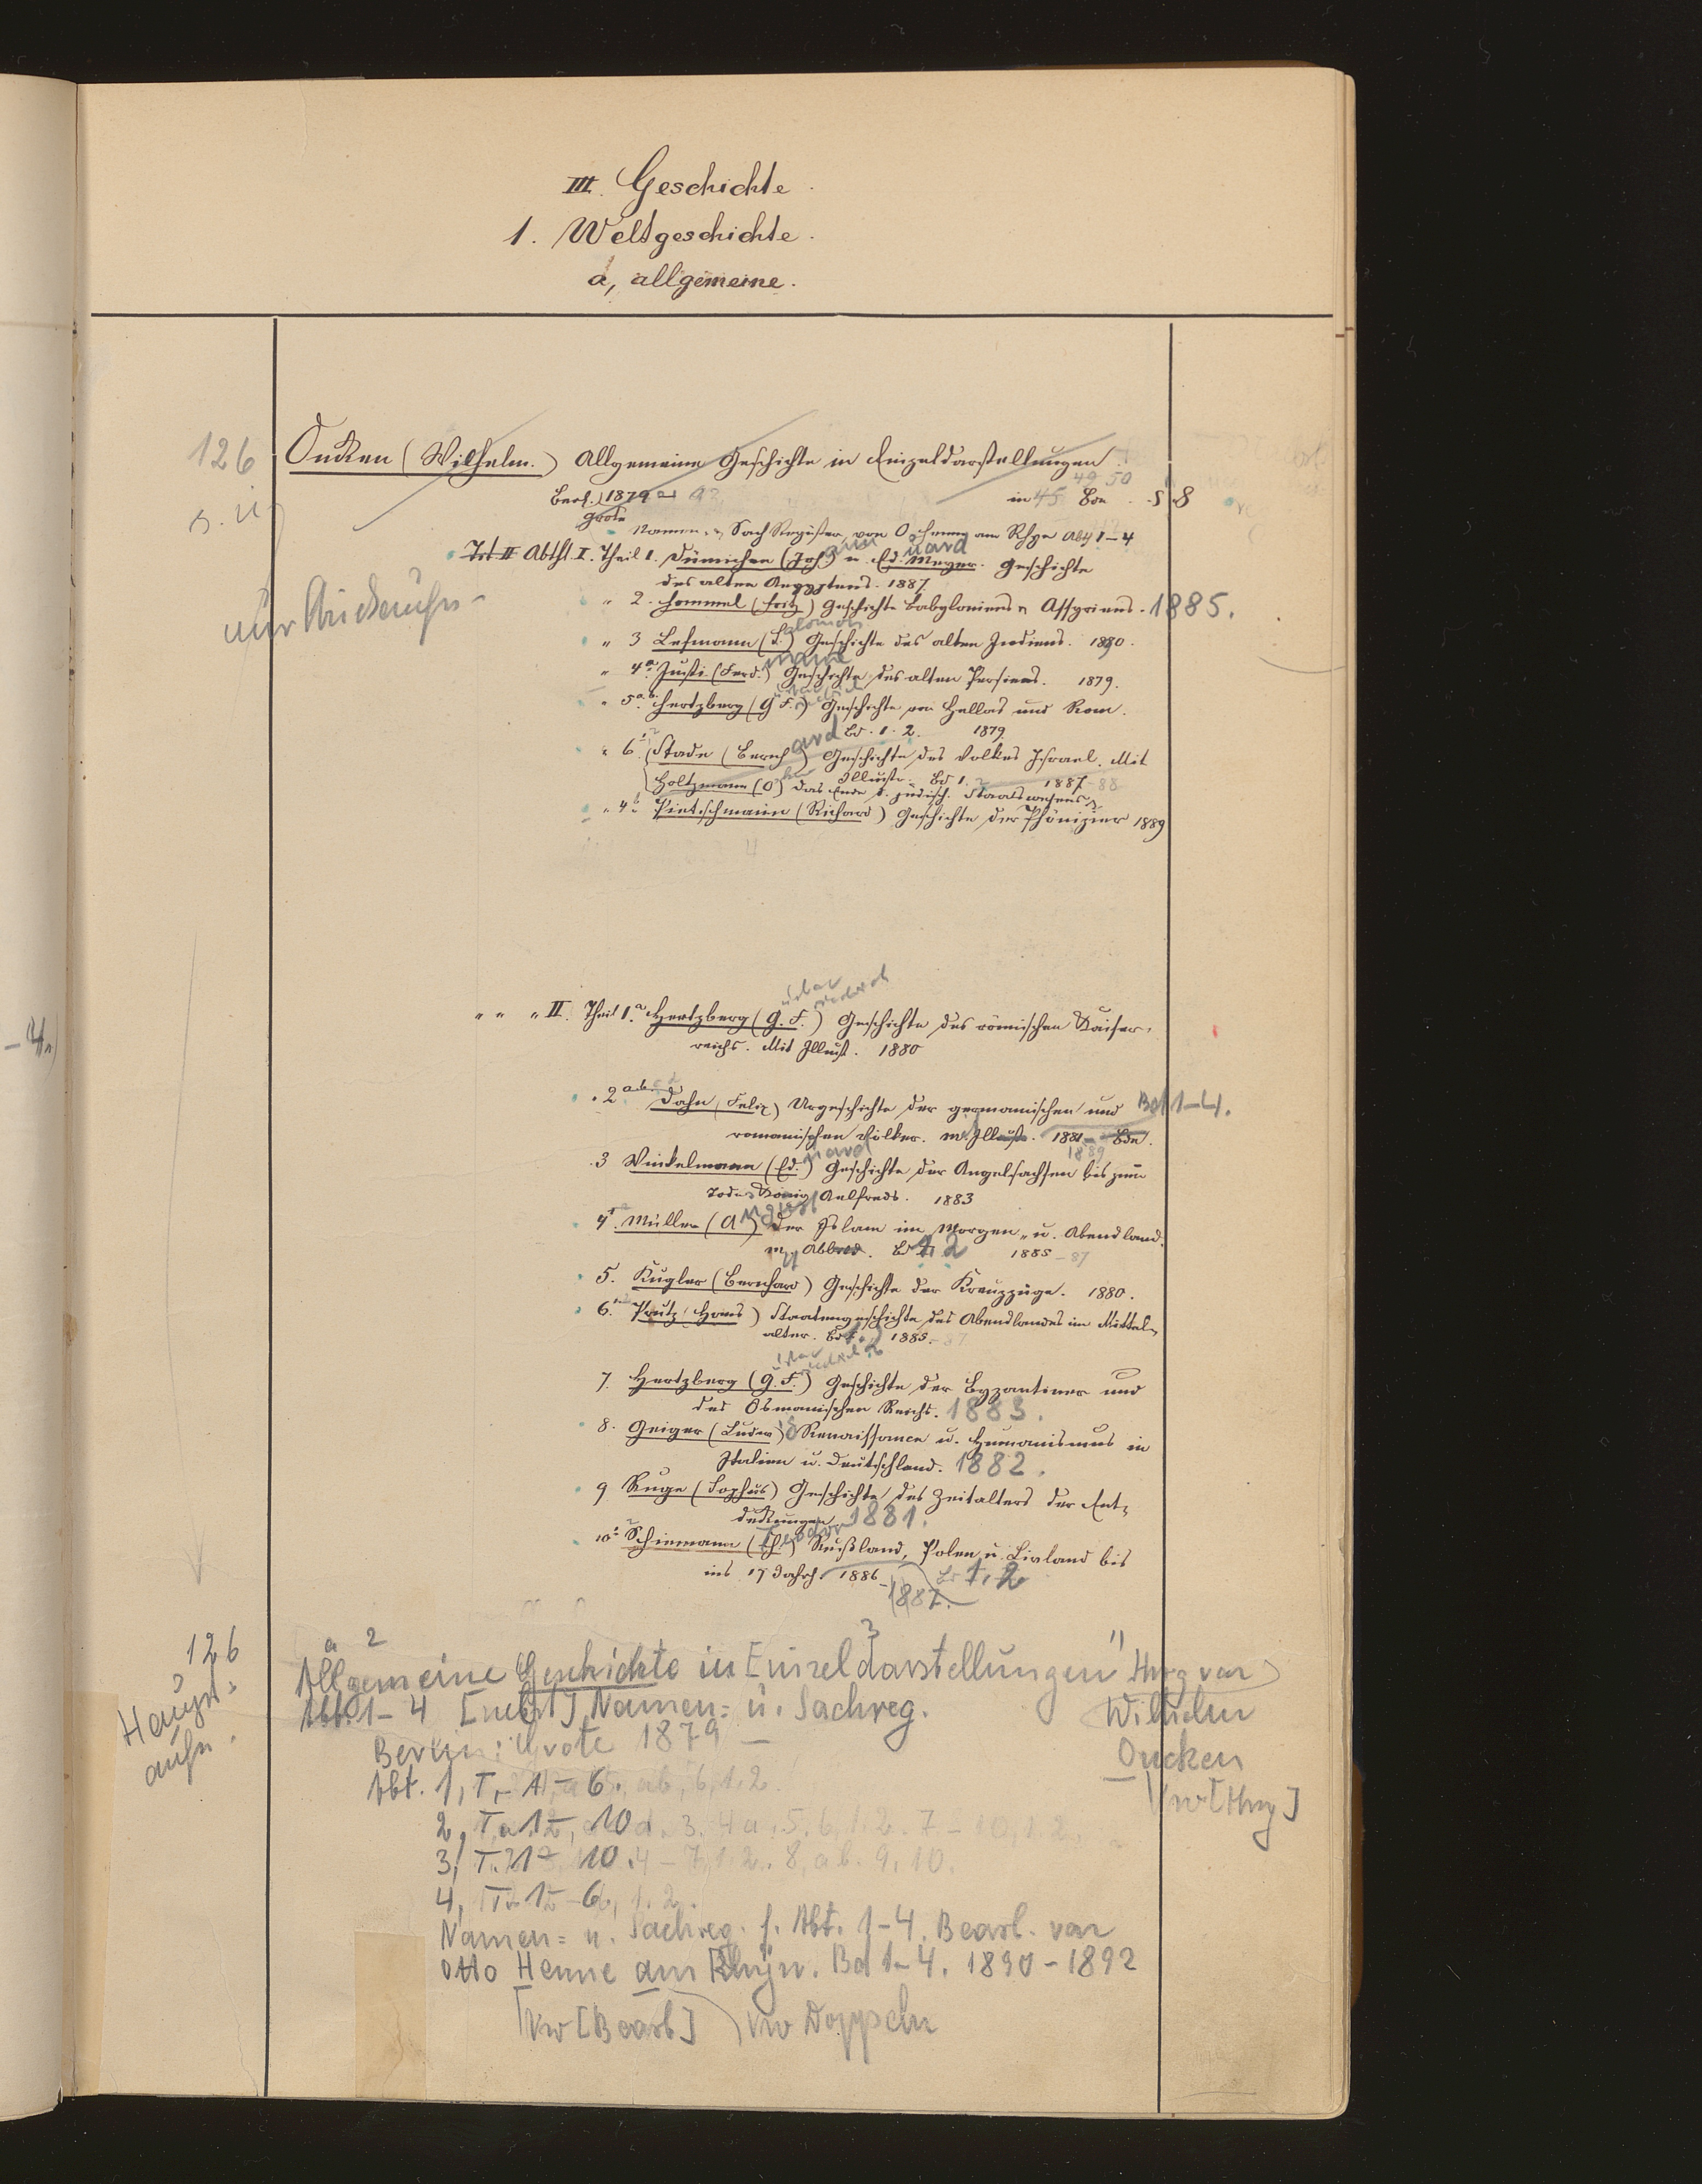 III. Geschichte.
1. Weltgeschichte.
a, allgemeine.
126 Oncken (Wilhelm.) Allgemeine Geschichte in Einzeldarstellungen.
49 50
Berl. 1879 in 45 Bde. 8
Grote
Namen- u. Sach Register, von O Henne am Rhyn Abt 1-4
Abthl. I. Theil 1. Dümichen (Johann) u. Eduard Meyer. Geschichte
des alten Aegyptens. 1887
nur Rückaufn-
" 2. Hommel (Fritz) Geschichte Babyloniens u Assyriens. 1885.
" 3 Lefmann (Salomon) Geschichte des alten Indiens. 1890.
" 4a. Justi (Ferd.) Geschichte des alten Persiens. 1879.
" 5a.b. Hertzberg (G. F.) Geschichte von Hellas und Rom.
Bd. 1. 2. 1879.
" 6. Stade (Bernhard) Geschichte des Volkes Israel. Mit
Illustr. Bd 1. 2 1887-88
Holtzmann (O) das Ende d. jüdisch. Staatswesens
" 4b Pietschmann (Richard) Geschichte der Phönizier 1889
" " " II. Theil 1.a Hertzberg (G. F.) Geschichte des römischen Kaiser-
reichs. Mit Illust. 1880
" 2 a.b.c.d Dahn (Felix) Urgeschichte der germanischen und Bd 1-4.
romanischen Völker. m. Illust. 1881- Bde.
1889
3 Winkelmann (Eduard) Geschichte der Angelsachsen bis zum
Tode König Aelfreds. 1883
4. Müller (August) Der Islam im Morgen- u. Abendland.
Bd 1. 2 1885-87
5. Kugler (Bernhard) Geschichte der Kreuzzüge. 1880.
6. Prutz (Hans) Staatengeschichte des Abendlandes im Mittel-
alter. Bd 1. 2 1885-87
7. Hertzberg (G. F.) Geschichte der Byzantiner und
des Osmanischen Reichs. 1883.
8. Geiger (Ludwig) Renaissance u. Humanismus in
Italien u. Deutschland. 1882.
9 Ruge (Sophus) Geschichte des Zeitalters der Ent-
deckungen 1881.
10. Schiemann (Theodor) Rußland, Polen u. Livland bis
ins 17 Jahrh. 1886- Bd 1. 2
1887.
126 Allgemeine Geschichte in Einzeldarstellungen" Hrsg von
Haupt-
aufn.
Abt. 1-4 [nebst] Namen- u. Sachreg. Wilhelm
Berlin: Grote 1879 - Oncken
Vw [Hrsg]
Abt. 1, T. 1-6.
2, T. 1-10
3, T. 1-10.
4, T. 1-6
Namen- u. Sachreg. f. Abt. 1-4. Bearb. von
Otto Henne am Rhyn. Bd 1-4. 1890-1892
Vw [Bearb] Vw Doppeln